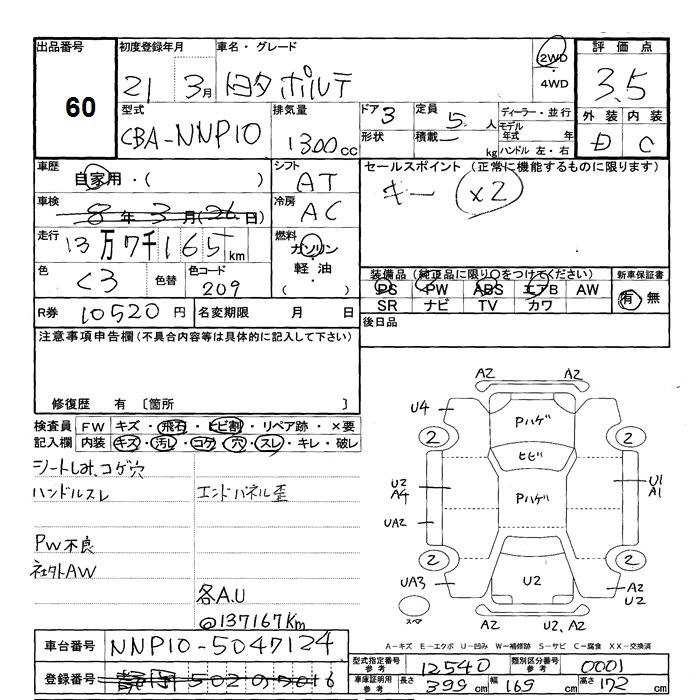 出品番号 初度登録年月 車名・グレード 2WD 評価点
60 21 3月 トヨタ ポルテ 4WD 3.5
型式 排気量 ドア 3 定員 5人 ディーラー・並行 外装 内装
CBA-NNP10 1300cc 形状 積載 kg モデル年式 年 D C
ハンドル 左・右
車歴 自家用・( ) シフト AT セールスポイント (正常に機能するものに限ります)
車検 8年3月(26日) 冷房 AC キー ×2
走行 13万7千165km 燃料 ガソリン
軽油・
( )
色 クロ 色替 色コード 209 装備品(純正品に限り○をつけてください) 新車保証書
PS PW ABS エアB AW 有 無
SR ナビ TV カワ
R券 10520円 名変期限 月 日 後日品
注意事項申告欄(不具合内容等は具体的に記入して下さい)
修復歴 有 〔箇所 〕
検査員 FW キズ・飛石・ヒビ割・リペア跡・×要
記入欄 内装 キズ・汚レ・コゲ・穴・スレ・キレ・破レ
シートしみ、コゲ穴
ハンドルスレ エンドパネル歪
PW不良
社外AW
各A.U
@137167Km
A2 A2
U4 A2
Pハゲ
2 2
ヒビ
U2 A4 Pハゲ U1 A1
UA2
2 2
UA3 U2 A2 U2
スペア A2 U2, A2
A-キズ E-エクボ U-凹み W-補修跡 S-サビ C-腐食 XX-交換済
車台番号 NNP10-5047124
登録番号 静岡 502 の 5016
型式指定番号 参考 12540 類別区分番号 参考 0001
車庫証明用 参考 長さ 399cm 幅 169cm 高さ 172cm